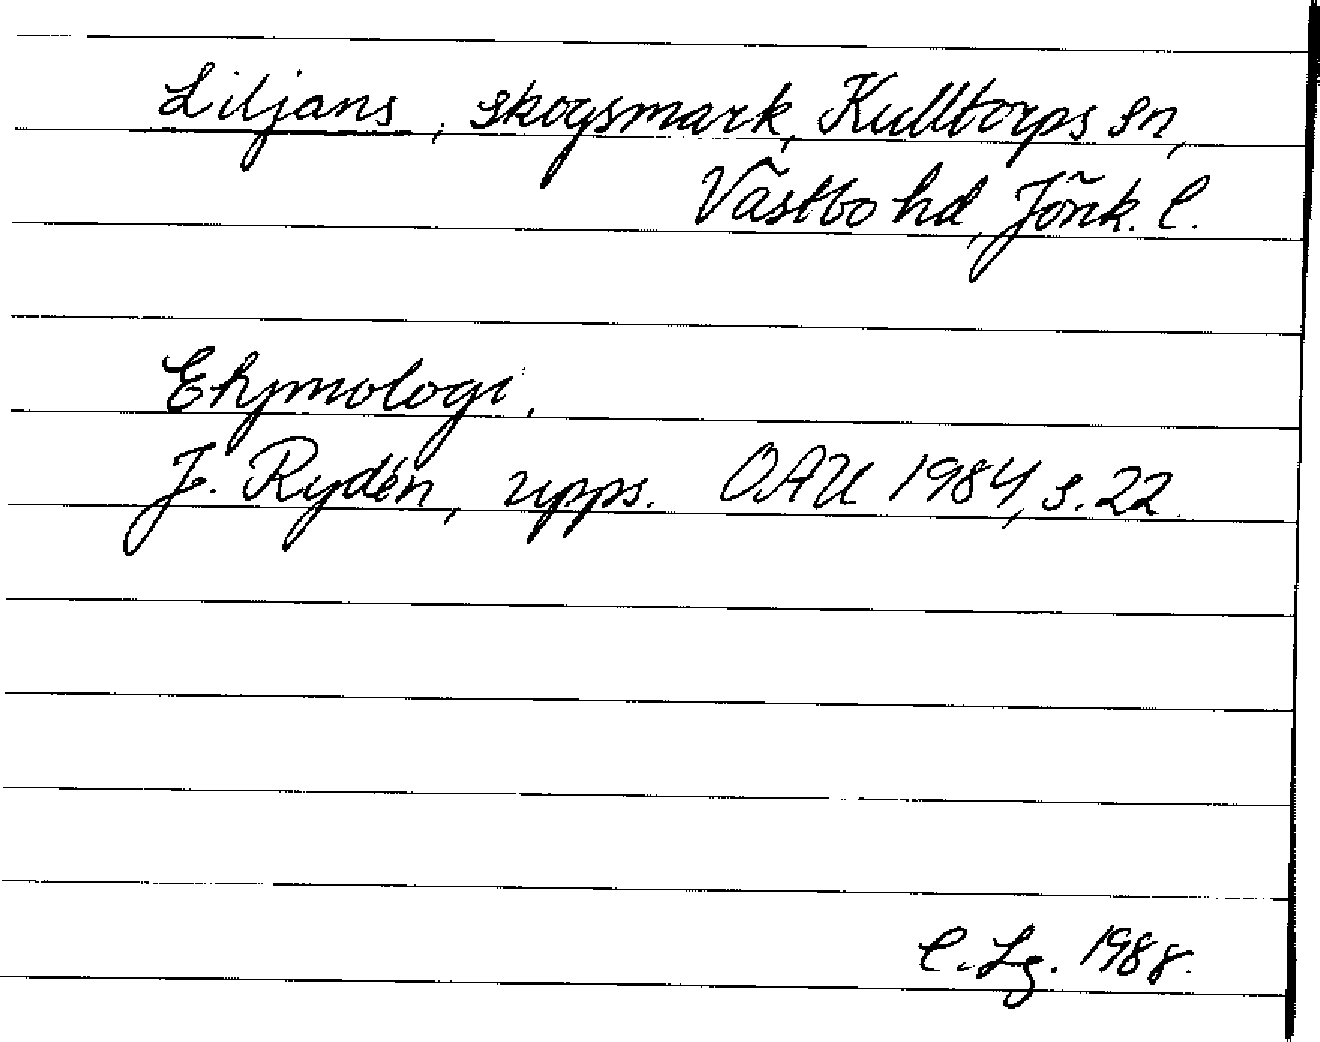 Liljans, skogsmark, Kulltorps sn,
Västbo hd, Jönk. l.
Etymologi.
J. Rydén, upps. OAU 1984, s. 22
C. Lg. 1988.